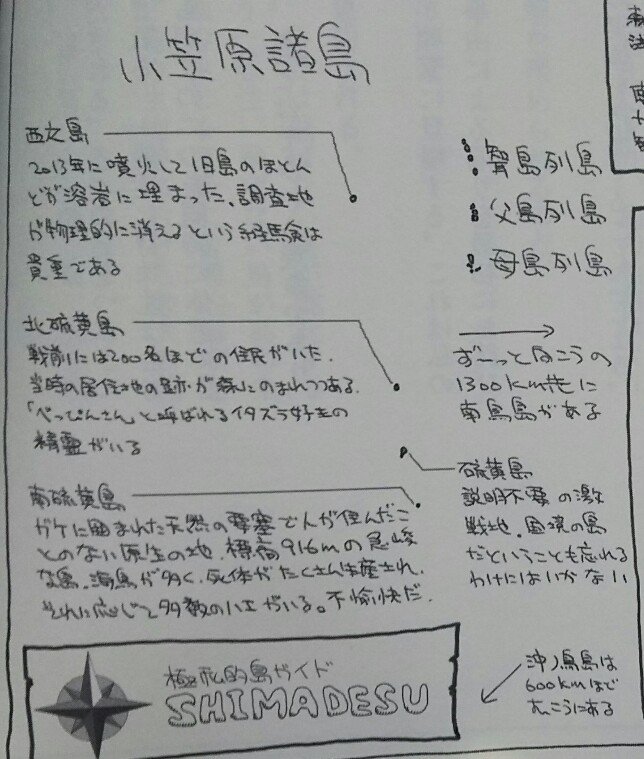 小笠原諸島
西之島
2013年に噴火して旧島のほとん
どが溶岩に埋まった、調査地
が物理的に消えるという経験は
貴重である
北硫黄島
戦前には200名ほどの住民がいた.
当時の居住地の跡が森にのまれつつある.
「べっぴんさん」と呼ばれるイタズラ好きの
精霊がいる
南硫黄島
ガケに囲まれた天然の要塞で人が住んだこ
とのない原生の地. 標高916mの急峻
な島. 海鳥が多く、死体がたくさん生産され、
それに応じて多数のハエがいる。不愉快だ.
聟島列島
父島列島
母島列島
ずーっと向こうの
1300km先に
南鳥島がある
硫黄島
説明不要の激
戦地. 国境の島
だということも忘れる
わけにはいかない
沖ノ鳥島は
600kmほど
むこうにある
極私的島ガイド
SHIMADESU